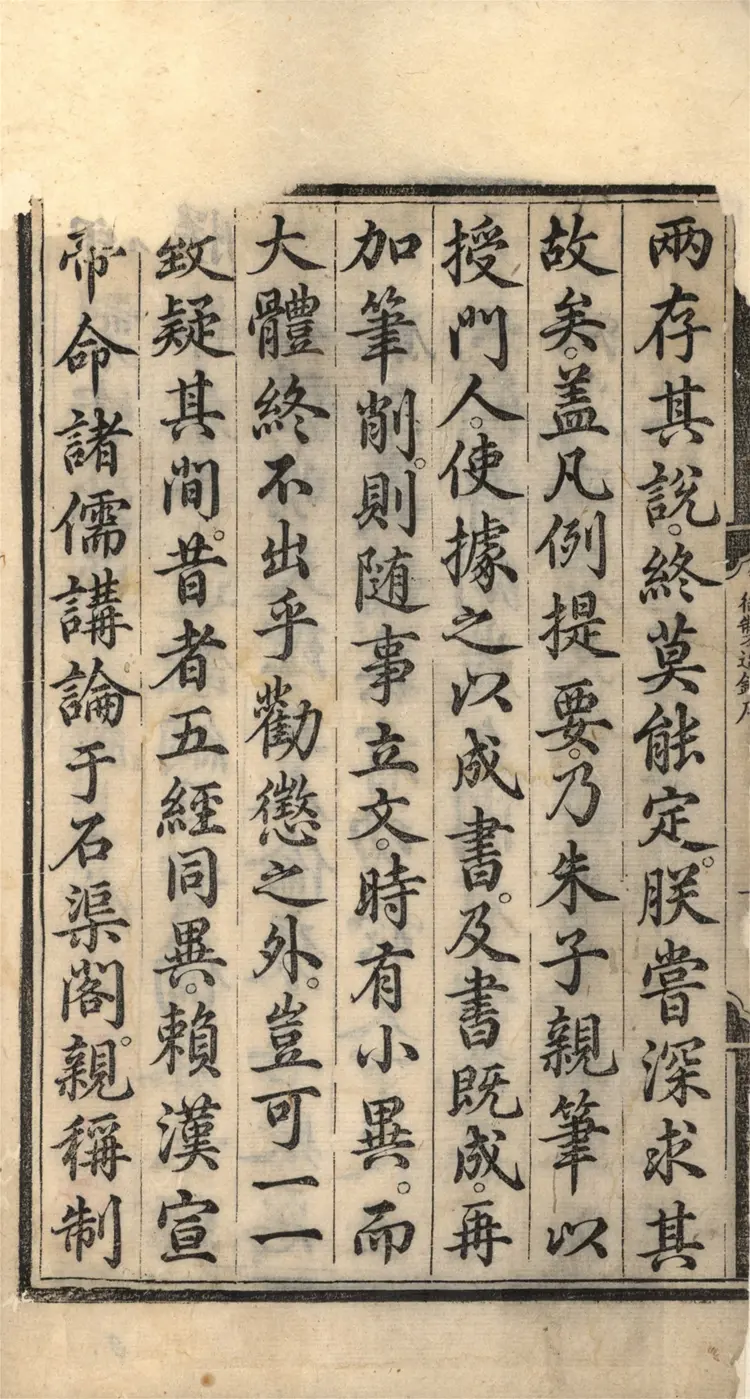 兩存其說。終莫能定。朕嘗深求其
故矣。盖凡例提要。乃朱子親筆以
授門人。使據之以成書。及書既成。再
加筆削。則随事立文。時有小異。而
大體終不出乎勸懲之外。豈可一一
致疑其間。昔者五經同異。賴漢宣
帝命諸儒講論于石渠閣。親稱制